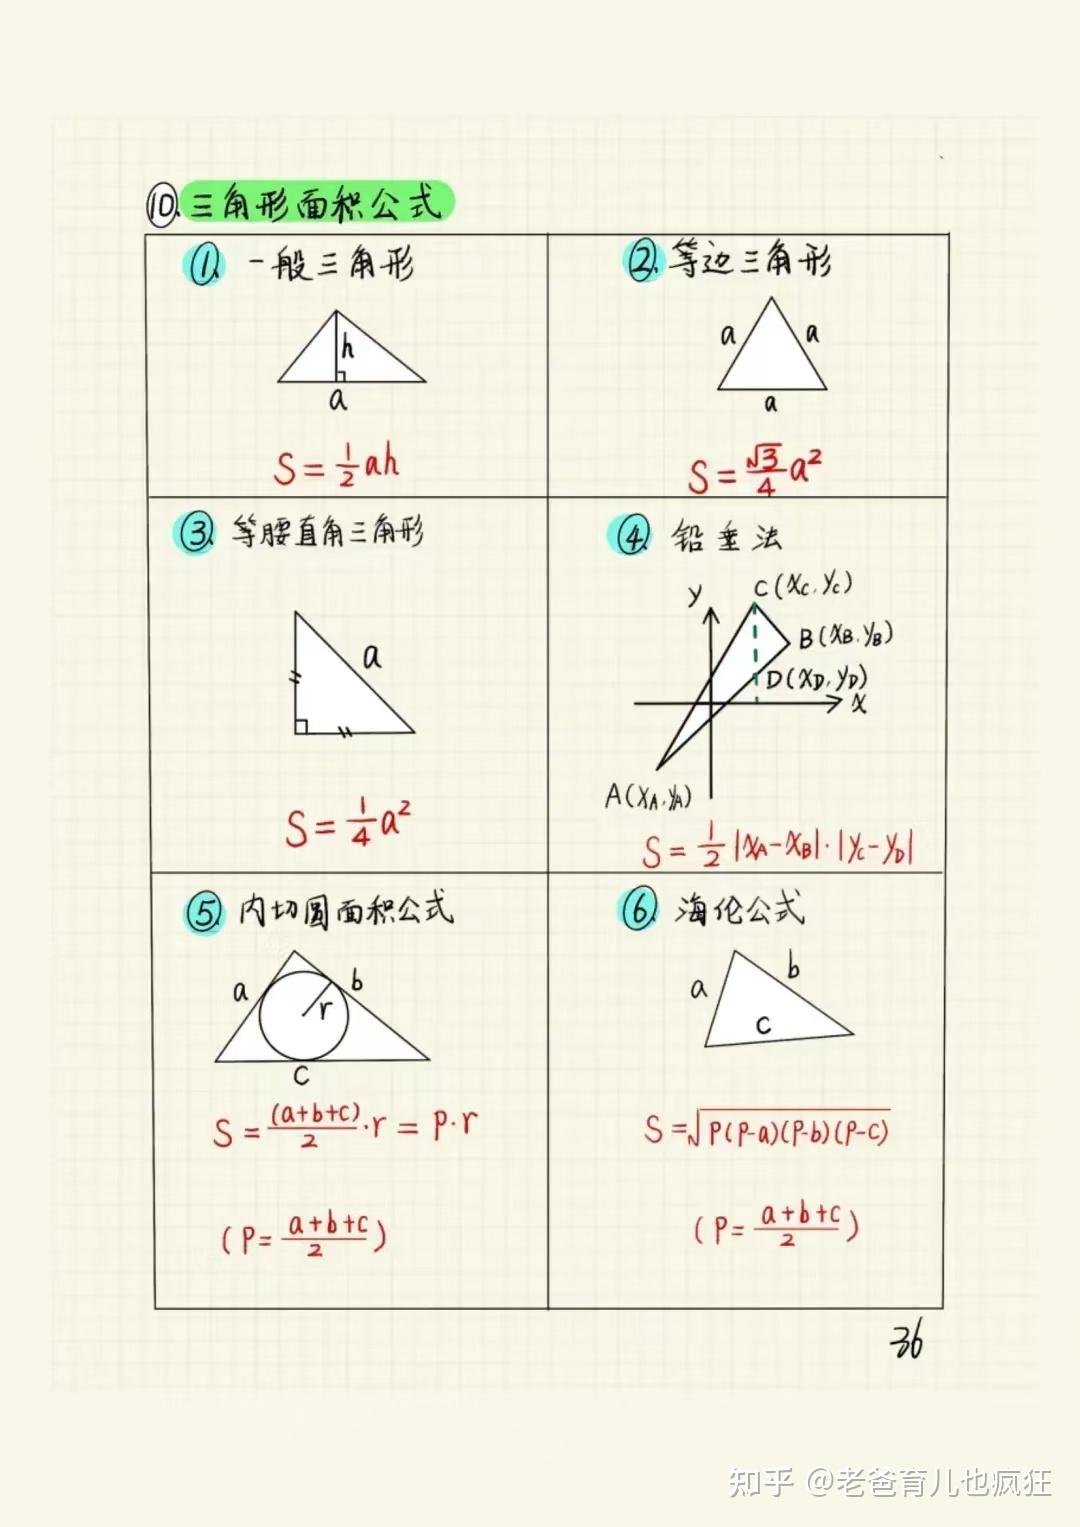 ⑩.三角形面积公式
①. 一般三角形
h
a
S = 1/2 ah
②. 等边三角形
a a
a
S = √3/4 a²
③. 等腰直角三角形
a
S = 1/4 a²
④. 铅垂法
y
C(xC, yC)
B(xB, yB)
D(xD, yD)
x
A(xA, yA)
S = 1/2 |xA-xB|·|yC-yD|
⑤. 内切圆面积公式
a b
r
c
S = (a+b+c)/2 ·r = P·r
(P= a+b+c/2)
⑥. 海伦公式
a b
c
S=√P(P-a)(P-b)(P-c)
(P= a+b+c/2)
36
知乎 @老爸育儿也疯狂